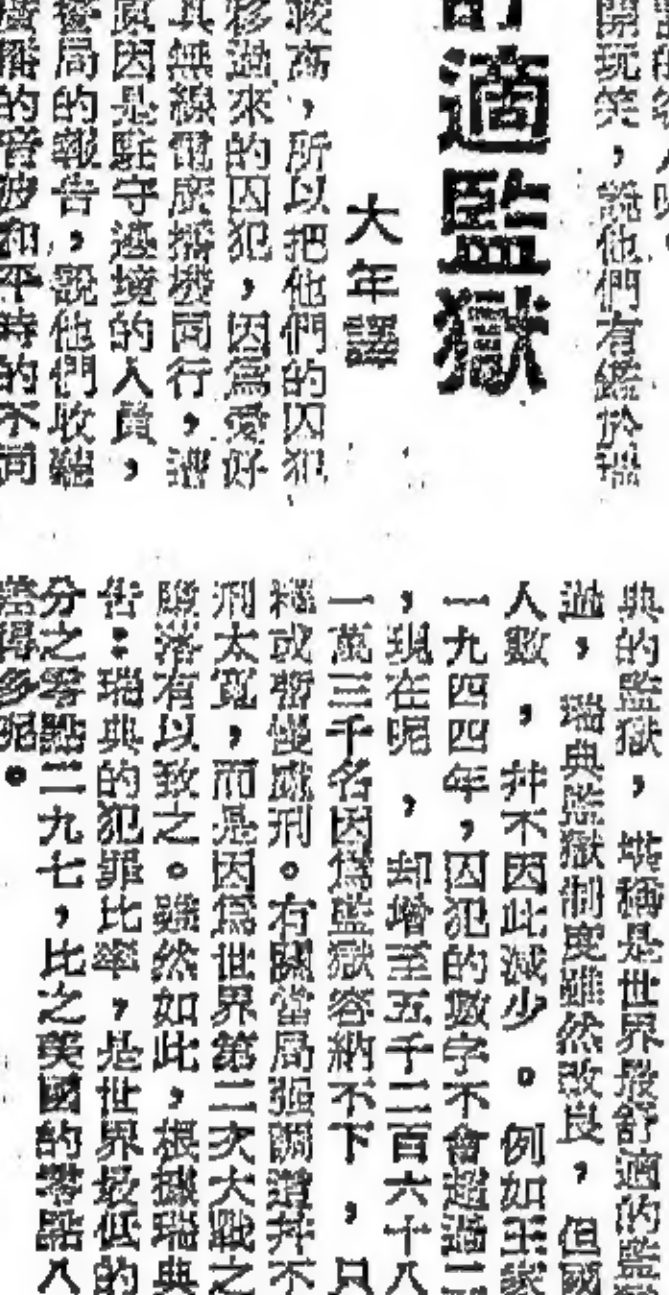 開玩笑，說他們有鑑於瑞
適監獄
大年譯
較高，所以把他們的囚犯
移過來的囚犯，因爲愛好
其無線電廣播機同行，
原因是駐守邊境的人員，
當局的報告，說他們收聽
播的音波和平時的不同
典的監獄，堪稱是世界最舒適的監獄
過，瑞典監獄制度雖然改良，但國
人數，幷不因此減少。例如王家
一九四四年，囚犯的數字不會超過二
，現在呢，却增至五千二百六十八
一萬三千名因爲監獄容納不下，只
釋或暫慢處刑。有關當局强調這幷不
刑太寬，而是因爲世界第二次大戰之
落有以致之。雖然如此，根據瑞典
告：瑞典的犯罪比率，是世界最低的
分之零點二九七，比之美國的零點八
差得多呢。